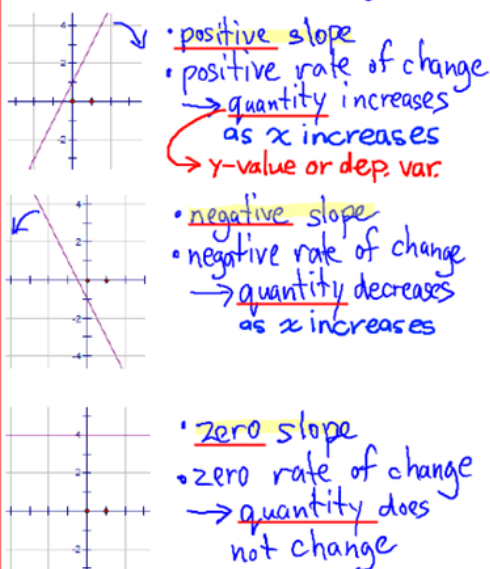 • positive slope
• positive rate of change
→ quantity increases
as x increases
→ y-value or dep. var.
• negative slope
• negative rate of change
→ quantity decreases
as x increases
• zero slope
• zero rate of change
→ quantity does
not change
4
2
-2
4
2
-2
-4
4
2
-2